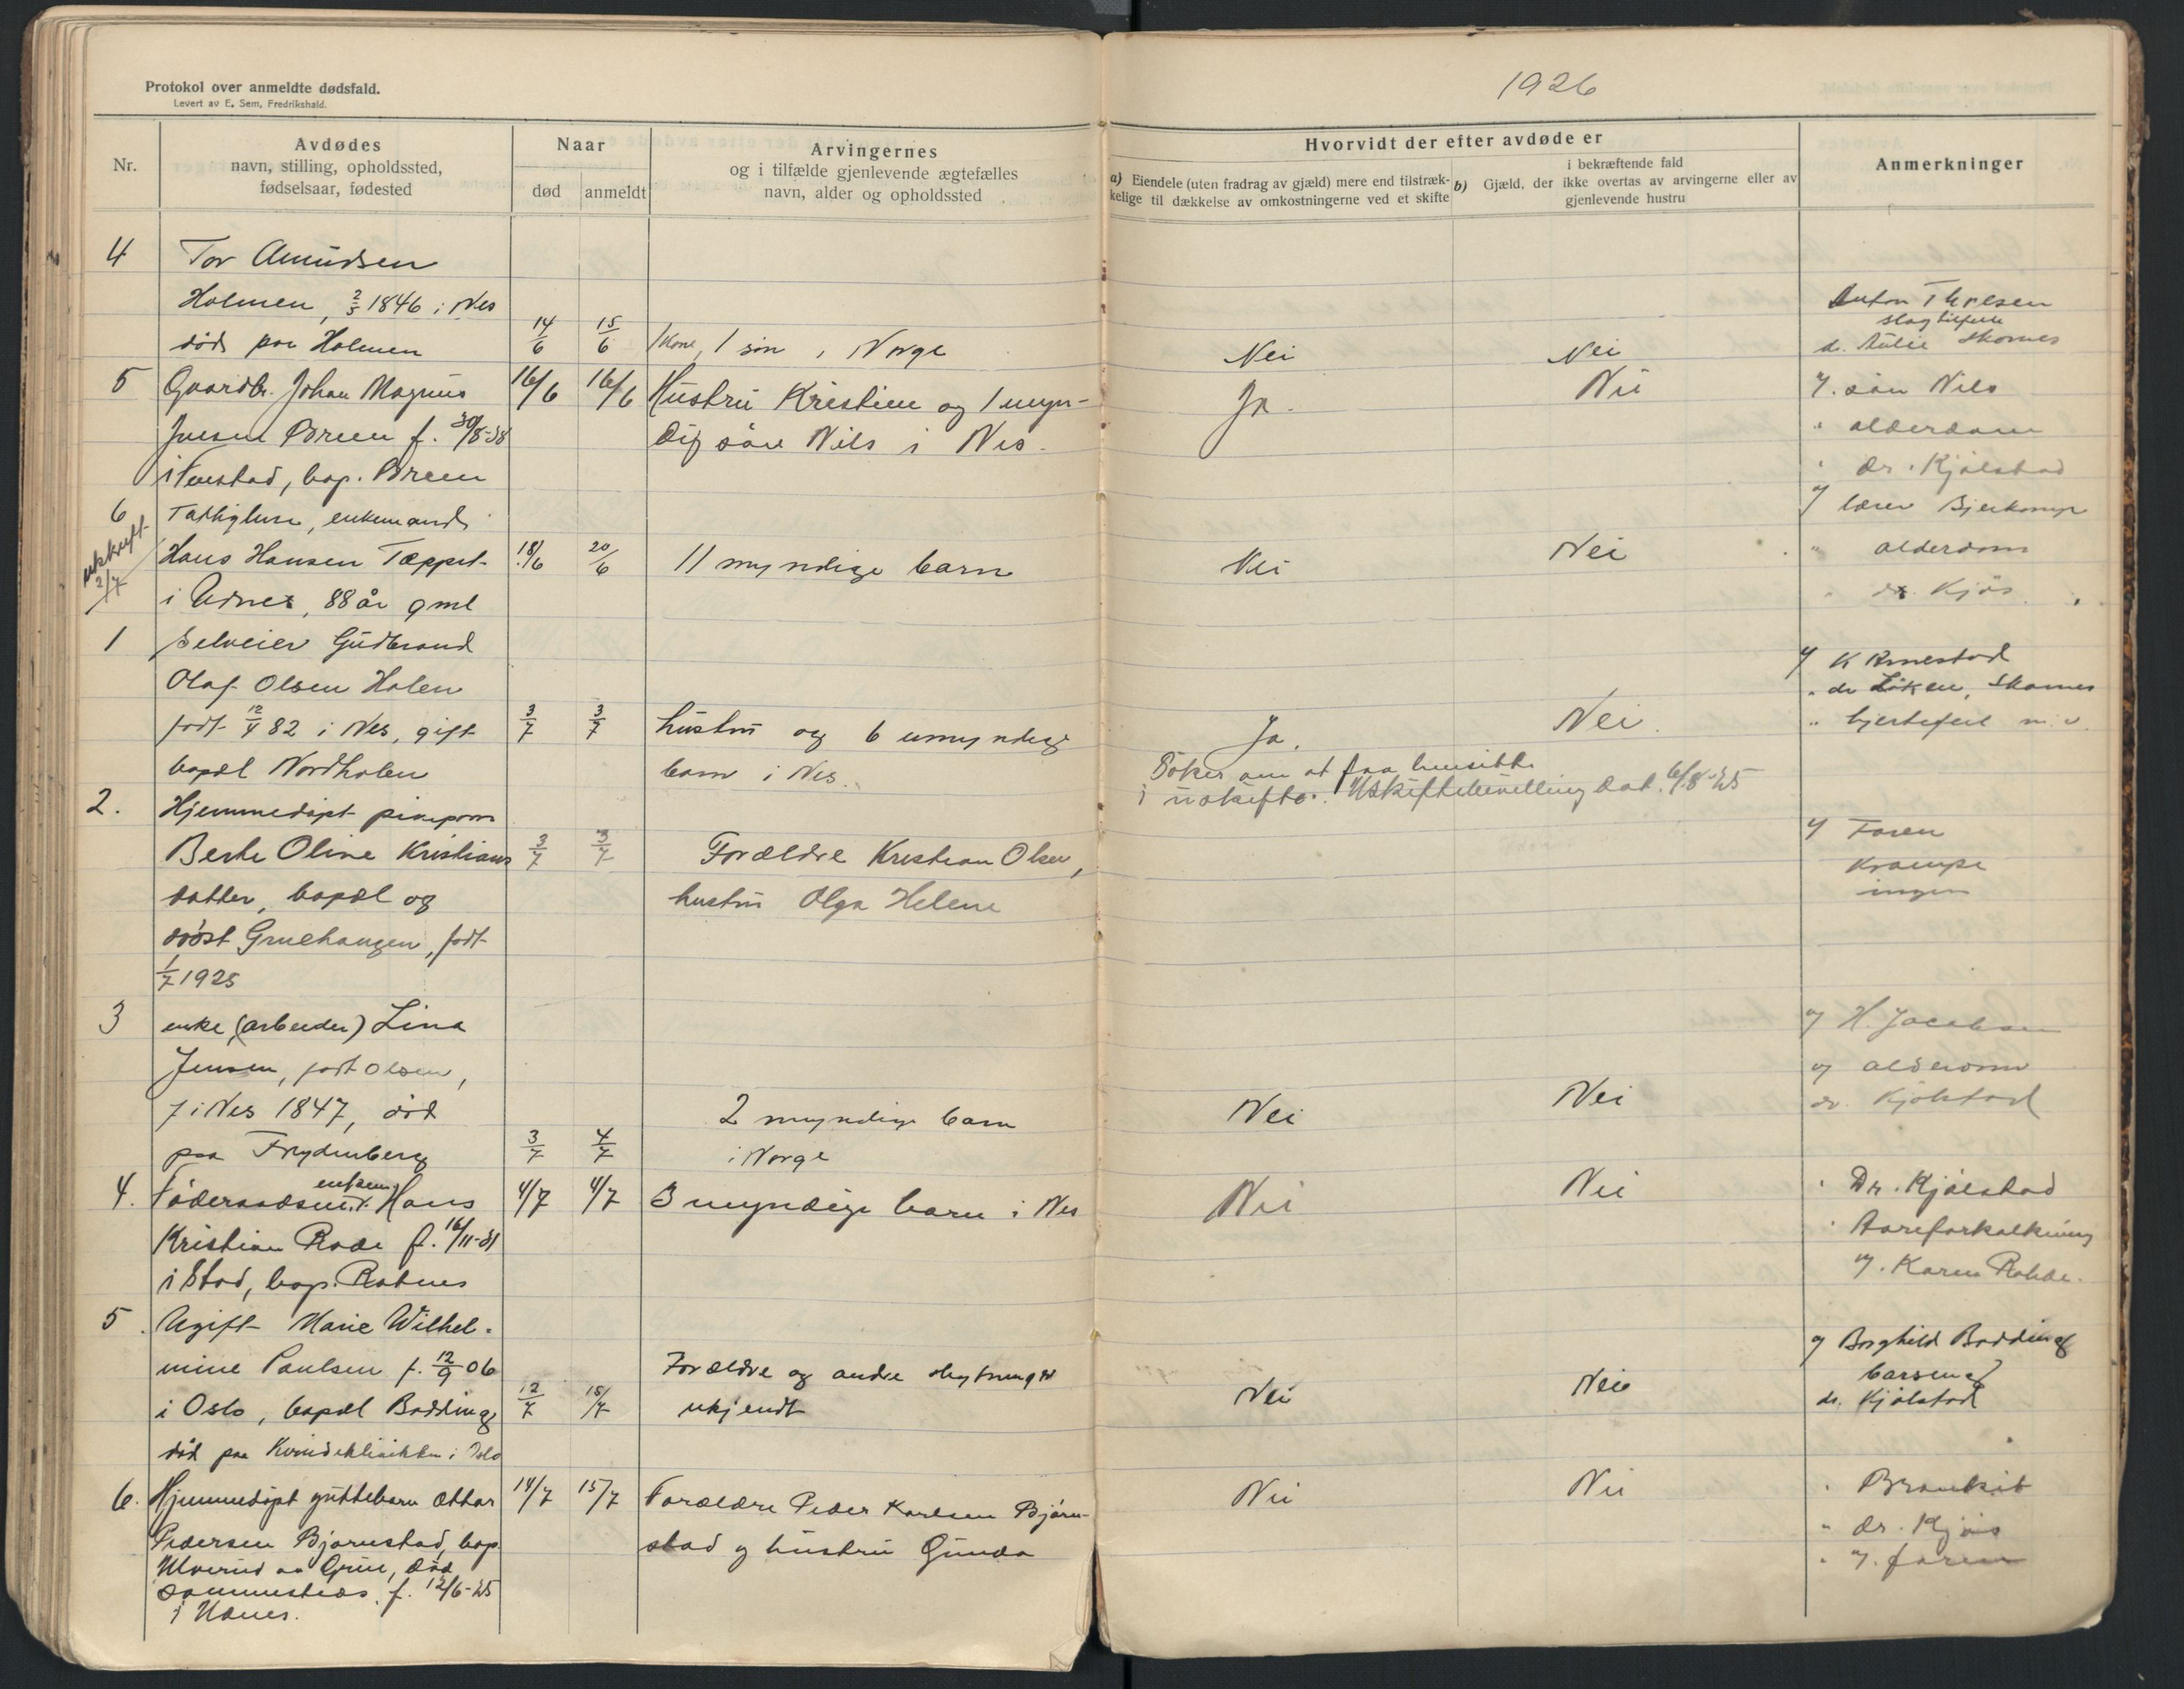 Protokol over anmeldte dødsfald.
Levert av E. Sem, Fredrikshald.
1926
Nr.
Avdødes
navn, stilling, opholdssted,
fødselsaar, fødested
Naar
død
anmeldt
Arvingernes
og i tilfælde gjenlevende ægtefælles
navn, alder og opholdssted
Hvorvidt der efter avdøde er
a) Eiendele (uten fradrag av gjæld) mere end tilstræk-
kelige til dækkelse av omkostningerne ved et skifte
i bekræftende fald
b) Gjæld, der ikke overtas av arvingerne eller av
gjenlevende hustru
Anmerkninger
4 Tor Amundsen
Holmen, 2/5 1846 i Nes
Anton
slagtilfelle
død paa Holmen 14/6 15/6 1 kone, 1 søn i Norge Nei Nei dr. Skarnes
5 Gaardbr. Johan Magnus 16/6 16/6 Hustru Kristine og 1 myn- Ja. Nei v. søn Nils
Breen f. 30/8-38 dig søn Nils i Nes. " alderdom
i bop. Breen " Dr. Kjølstad
6 enkemand v lærer
utskrift 2/7
Hans Hansen 18/6 20/6 11 myndige barn Nei Nei " alderdom
i Udnes, 88 år gml " dr. Kjøs
1 Selveier Gudbrand v K
Olaf Olsen Holen " dr Løken, Skarnes
født 12/4 82 i Nes, gift 3/7 3/7 hustru og 6 umyndige Ja. Nei. " hjertefeil m.v.
bopæl Nordholen barn i Nes. Søker om at faa hensitte
i uskifte. Uskiftebevilling dat. 6/8-25
2. Hjemmedøpt pikebarn v Faren
Berte Oline Kristians 3/7 3/7 Forældre Kristian Olsen, Krampe
datter, bopæl og hustru Olga Helene ingen
dødst Gruehaugen, født
1/7 1925
3 enke (arbeider) Lina v H. Jacobsen
Jensen, født Olsen, v alderdom
f i Nes 1847, død 2 myndige barn Nei Nei dr. Kjølstad
paa Frydenberg 3/7 4/7 i Norge
4. enkem. Hans 4/7 4/7 3 myndige barn i Nes Nei Nei " Dr. Kjølstad
Kristian Rode f. 16/11-31 " Aareforkalkning
i Stod, bop. Ratnes v. Karen
5. Ugift Marie Wilhel- v Borghild Bødding
mine Paulsen f. 12/9 06 Forældre og andre slegtninger barseng
i Oslo, bopæl Bødding 12/7 15/7 ukjendt Nei Nei dr. Kjølstad
død paa Kvindeklinikken i Oslo
6. Hjemmedøpt guttebarn Ottar 14/7 15/7 Forældre Peder Karlsen Bjørn- Nei Nei " Bronkit
Pedersen Bjørnstad, bop. stad og hustru Gunda " dr. Kjøs
Ulverud au Grue, død " v. faren
sammesteds. f. 12/6-25
i Udnes.